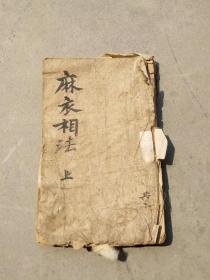 麻衣相法 上